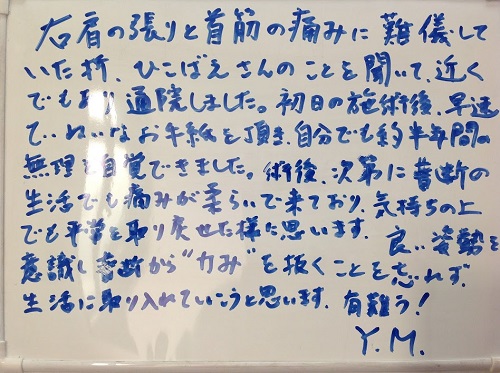 右肩の張りと首筋の痛みに難儀して
いた折、ひこばえさんのことを聞いて、近く
でもあり通院しました。初日の施術後、早速
ていねいなお手紙を頂き、自分でも約半年間の
無理を自覚できました。術後、次第に普断の
生活でも痛みが柔らいで来ており、気持ちの上
でも平常を取り戻せた様に思います。良い姿勢を
意識し普断から“力み”を抜くことを忘れず、
生活に取り入れていこうと思います。有難う!
Y.M.